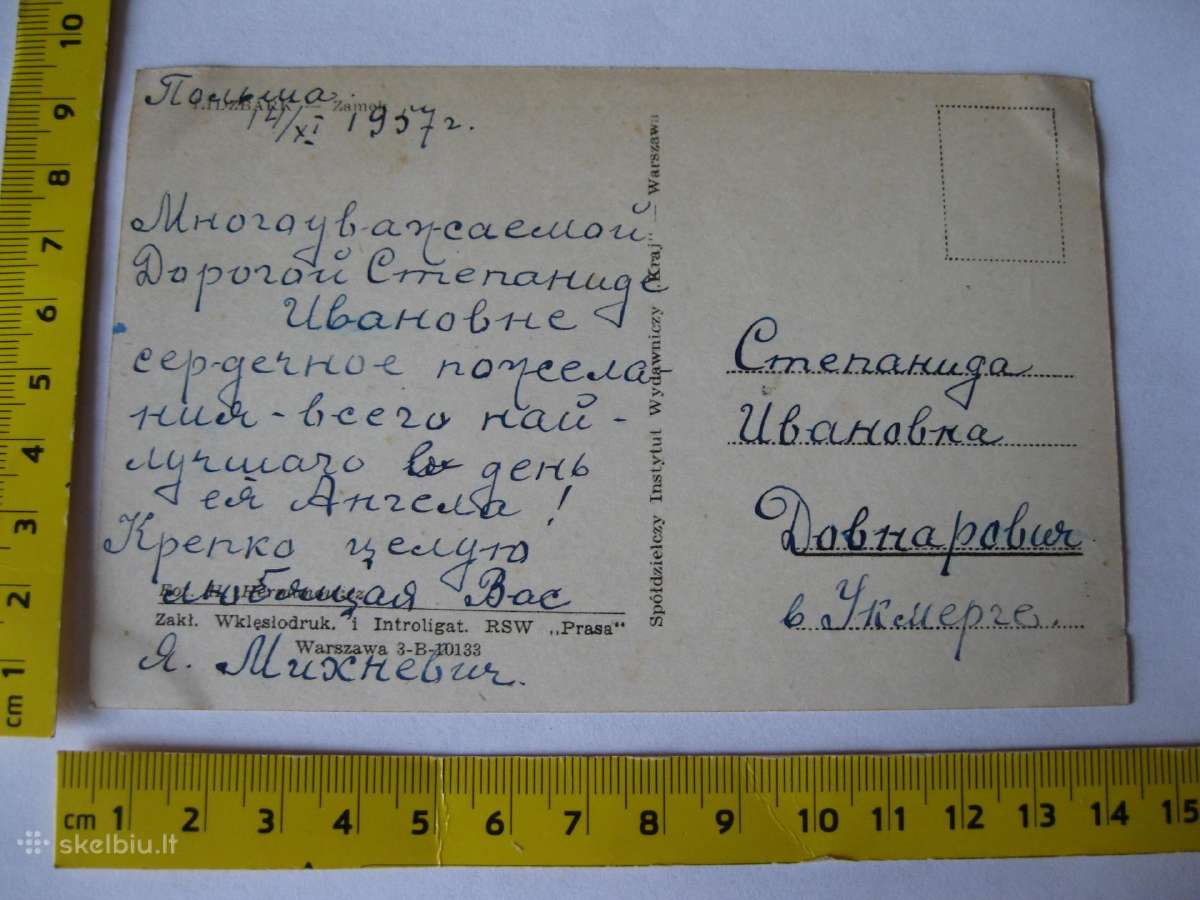 LIDZBARK — Zamek
Польша
14/XI 1957 г.
Многоуважаемой
Дорогой Степаниде
Ивановне
сердечное пожела-
ния - всего най-
лучшаго во день
ея Ангела!
Крепко целую
любящая Вас
Fot. H.
Zakł. Wklęsłodruk. i Introligat. RSW „Prasa“
Warszawa 3-B-10133
Я. Михневич.
Spółdzielczy Instytut Wydawniczy „Kraj“ — Warszawa
Степанида
Ивановна
Довнарович
в Укмерге.
10
9
8
7
6
5
4
3
2
1
cm
cm 1 2 3 4 5 6 7 8 9 10 11 12 13 14 15
skelbiu.lt